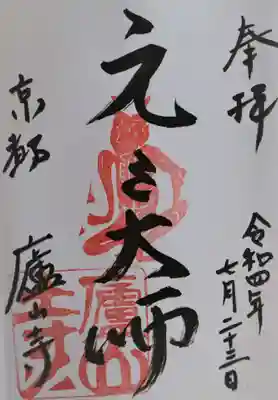 奉拝
令和四年
七月二十三日
元三大師
京都
廬山寺